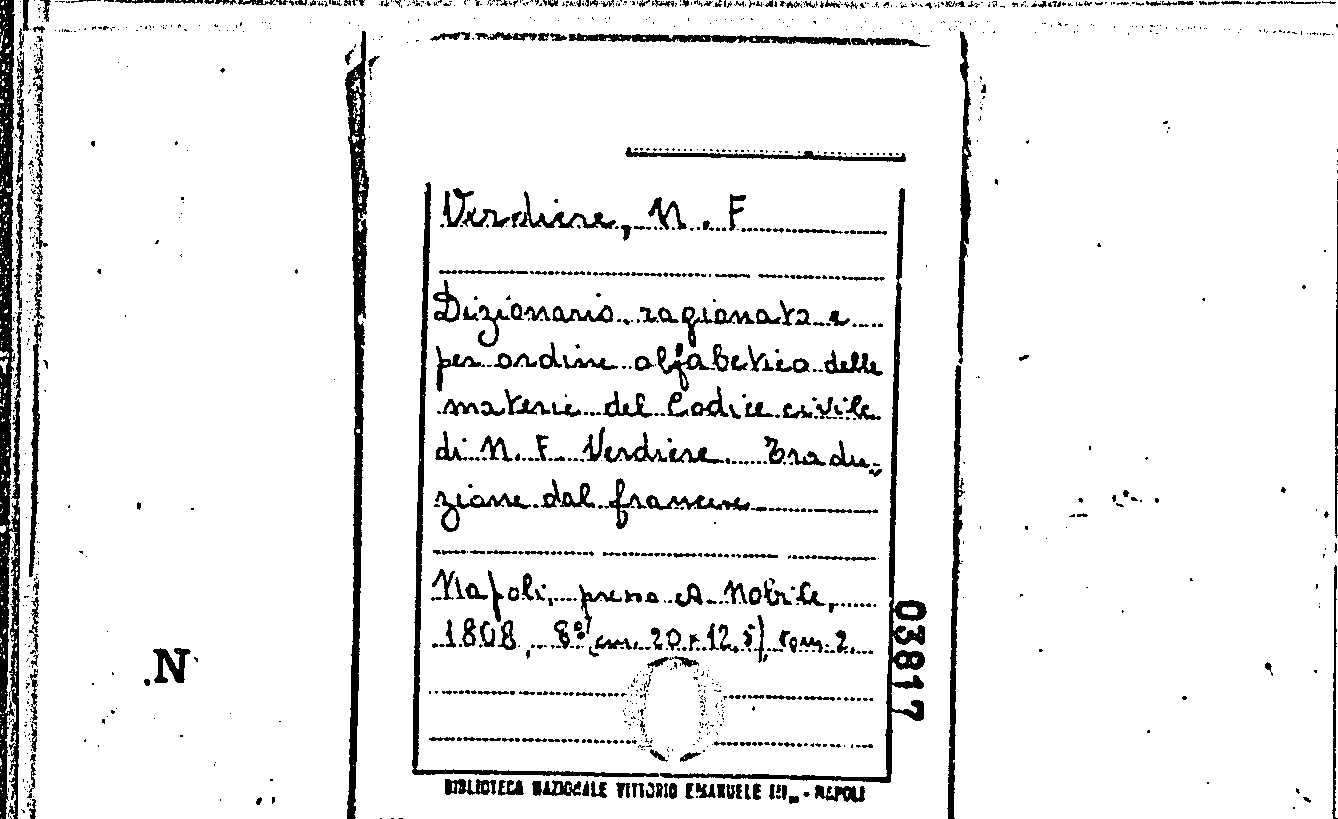 Verdiere, N. F
Dizionario ragionato e
per ordine alfabetico delle
materie del Codice civile
di N. F. Verdiere. Tradu-
zione dal francese
Napoli, presso A. Nobile,
1808, 8º (cm. 20 x 12,5), tom. 2.
03817
.N
BIBLIOTECA NAZIONALE VITTORIO EMANUELE III„ - NAPOLI